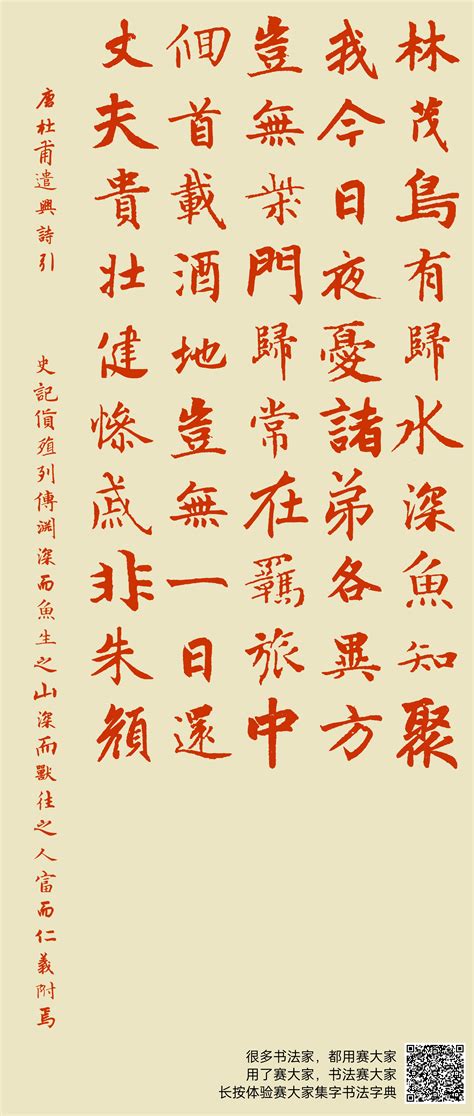 林茂鳥有歸水深魚知聚
我今日夜憂諸弟各異方
豈無柴門歸常在羈旅中
佪首載酒地豈無一日還
丈夫貴壯健慘戚非朱顏
唐杜甫遣興詩引
史記貨殖列傳淵深而魚生之山深而獸往之人富而仁義附焉
很多书法家，都用赛大家
用了赛大家，书法赛大家
长按体验赛大家集字书法字典